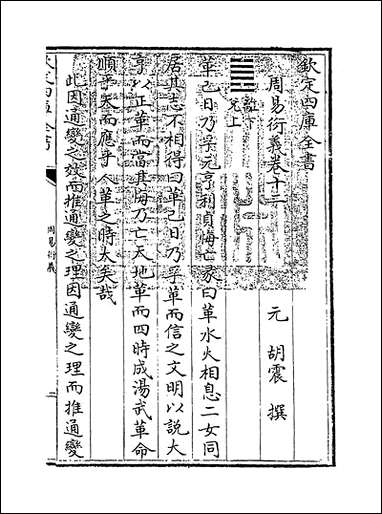 欽定四庫全書
周易衍義卷十三
元 胡震 撰
離下
兌上
革己日乃孚元亨利貞悔亡彖曰革水火相息二女同
居其志不相得曰革己日乃孚革而信之文明以說大
亨以正革而當其悔乃亡天地革而四時成湯武革命
順乎天而應乎人革之時大矣哉
此因通變之效而推通變之理因通變之理而推通變
欽定四庫全書
周易衍義